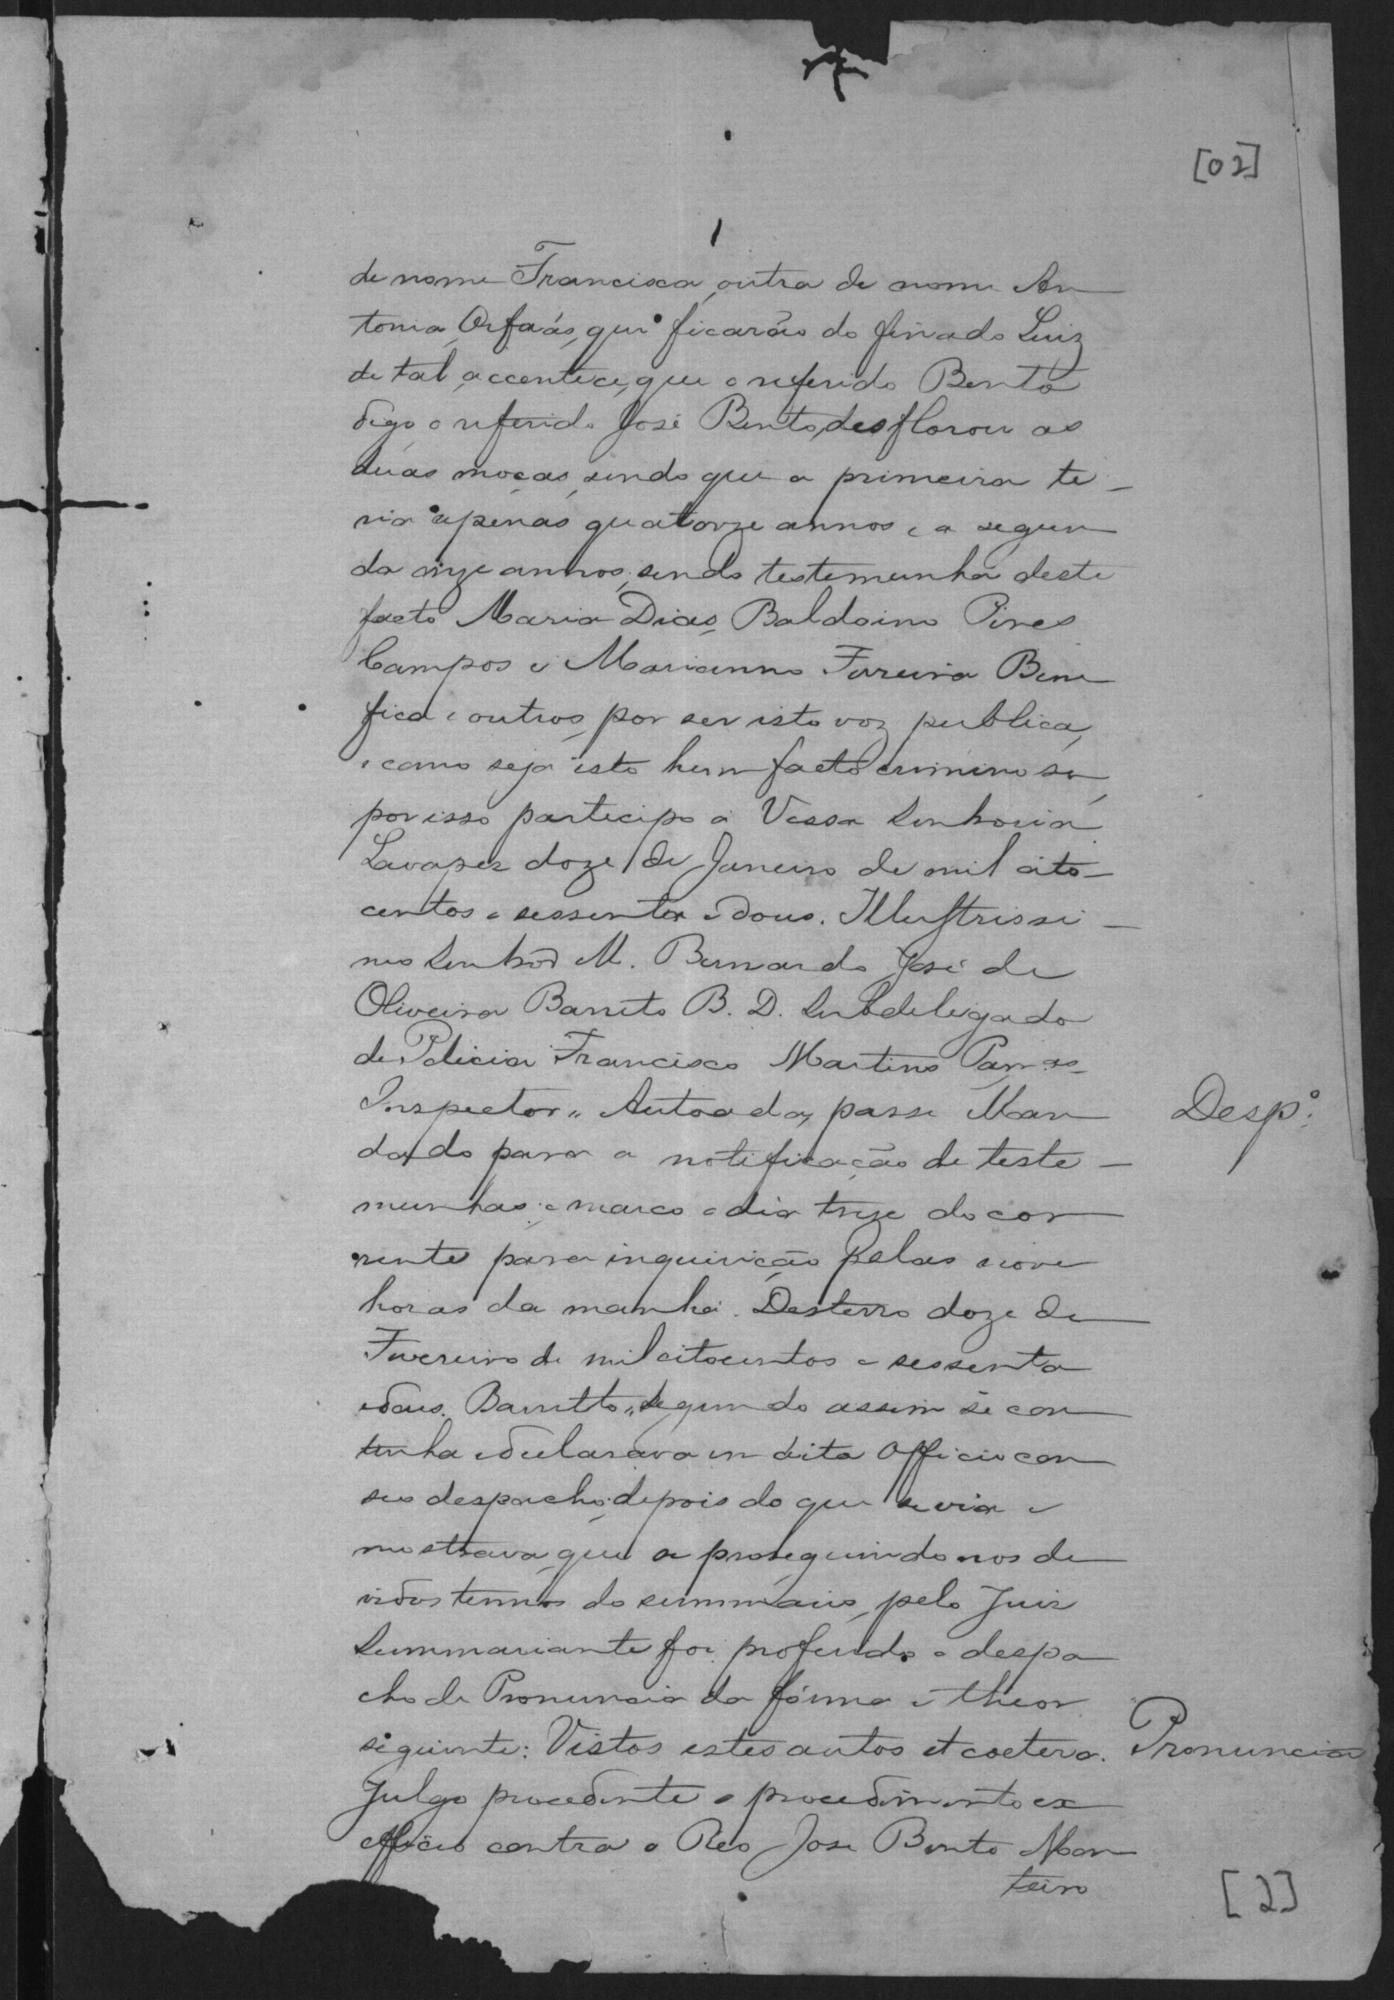 [02]
de nome Francisca, outra de nome An
tonia, Orfaãs, que ficarão do finado Luiz
de tal, accontece, que o referido Bento
digo o referido José Bento, desflorou as
duas moças, sendo que a primeira te-
ria apenas quatorze annos, e a segun
da onze annos, sendo testemunha deste
facto Maria Dias, Baldoino Pires
Campos e Marianno Ferreira Bem
fica e outros, por ser isto voz publica,
e como seja isto hum facto criminoso,
por isso participo a Vossa Senhoria
Lavapes doze de Janeiro de mil oito-
centos e sessenta e dous. Illustrissi-
mo Senhor M. Bernardo José de
Oliveira Barreto B. D. Subdelegado
de Policia Francisco Martins
Inspector,, Autoada, passe Man
dado para a notificação de teste-
munhas, e marco o dia treze do cor
rente para inquirição pelas nove
horas da manhã. Desterro doze de
Fevereiro de mil oitocentos e sessenta
e dous. Barretto,, Segundo assim se con
tinha e declarava em dito Officio com
seu despacho, depois do que se via e
mostrava, que se proseguindo nos de
vidos termos do summario, pelo Juiz
Summariante foi proferido o despa
cho de Pronuncia da fórma e theor
seguinte: Vistos estes autos et coetera.
Julgo procedente o procedimento ex
officio contra o Reo José Bento Mon
teiro
Desp.º
Pronuncia
[2]